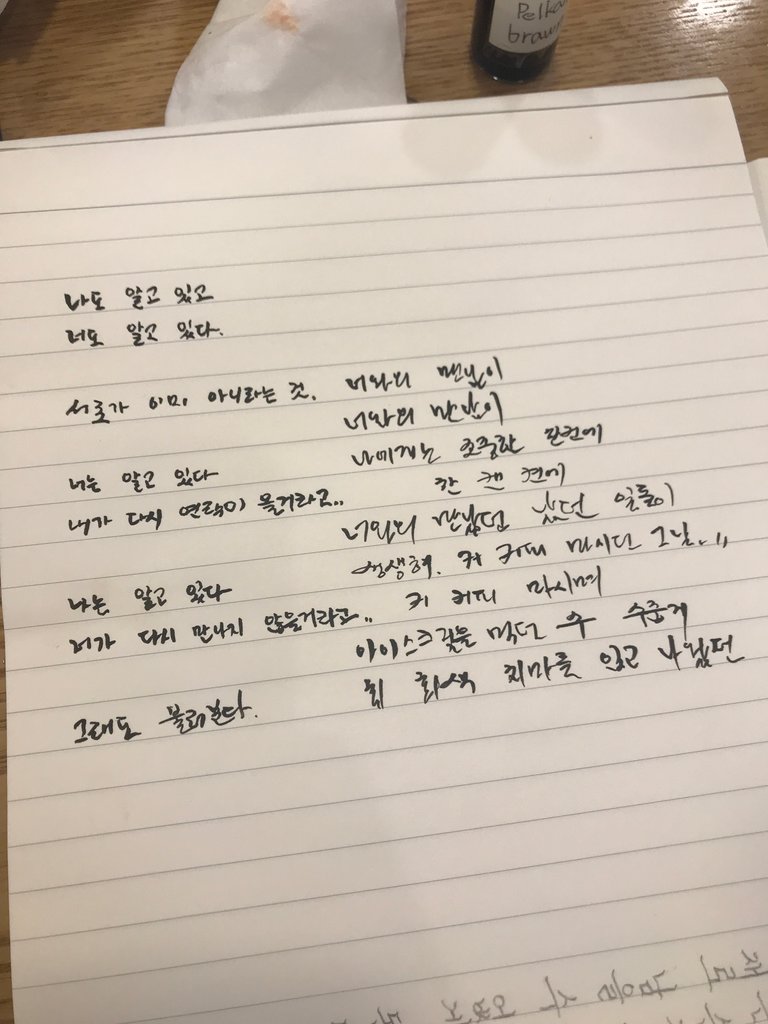 Pelka
brown
나도 알고 있고
너도 알고 있다.
서로가 이미 아니라는 것.
너는 알고 있다
내가 다시 연락이 올거라고..
나는 알고 있다
너가 다시 만나지 않을거라고..
그래도 불러본다.
너와의 맨날이
너와의 만남이
나에게는 소중한
칸 캔 켠에
너와의 만났던 났던 일들이
생생해. 커 커피 마시던 그날..,,
키 커피 마시며
아이스크림을 먹던 수 수줍게
회 회색 치마를 입고 나왔던